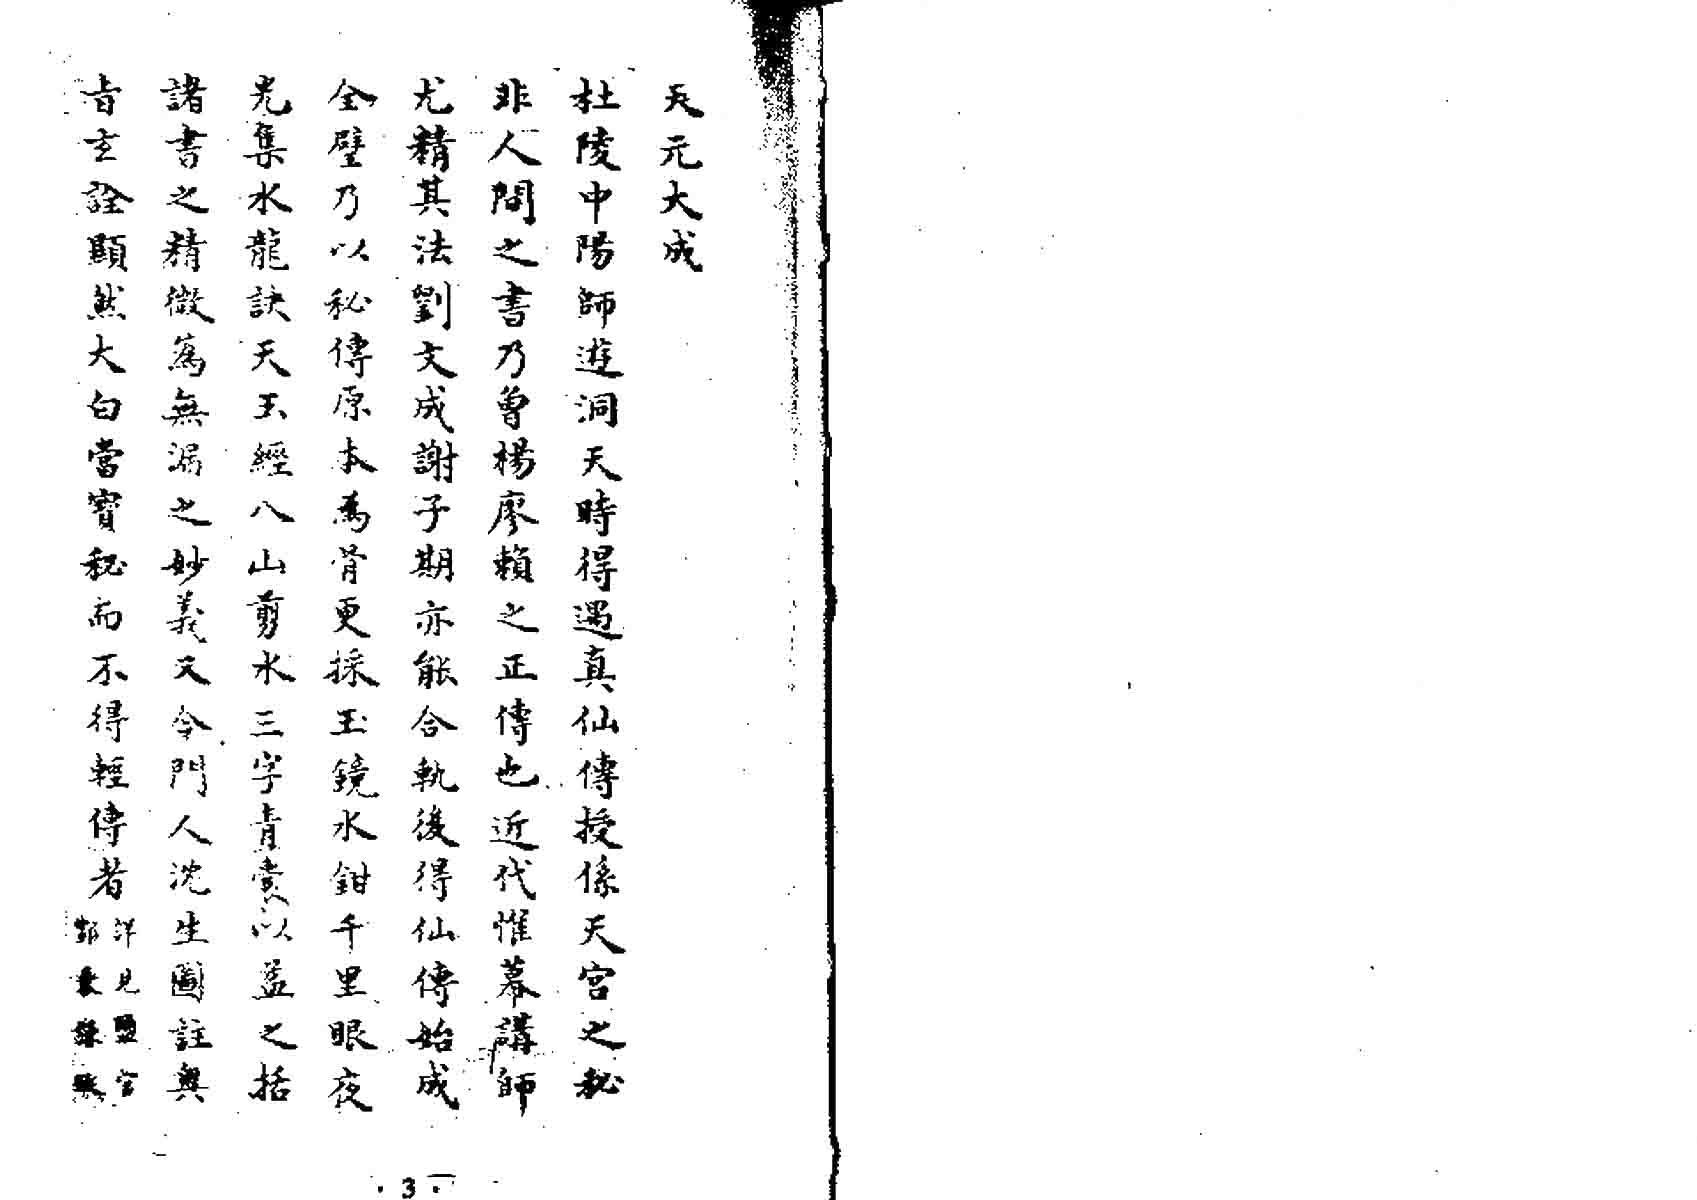 天元大成
杜陵中陽師遊洞天時得遇真仙傳授係天宮之秘
非人間之書乃曾楊廖賴之正傳也近代惟幕講師
尤精其法劉文成謝子期亦能合軌後得仙傳始成
全璧乃以秘傳原本為骨更採玉鏡水鉗千里眼夜
光集水龍訣天玉經八山剪水三字青囊以益之括
諸書之精微為無漏之妙義又令門人沈生圖註與
旨玄詮顯然大白當寶秘而不得輕傳者
詳見
3